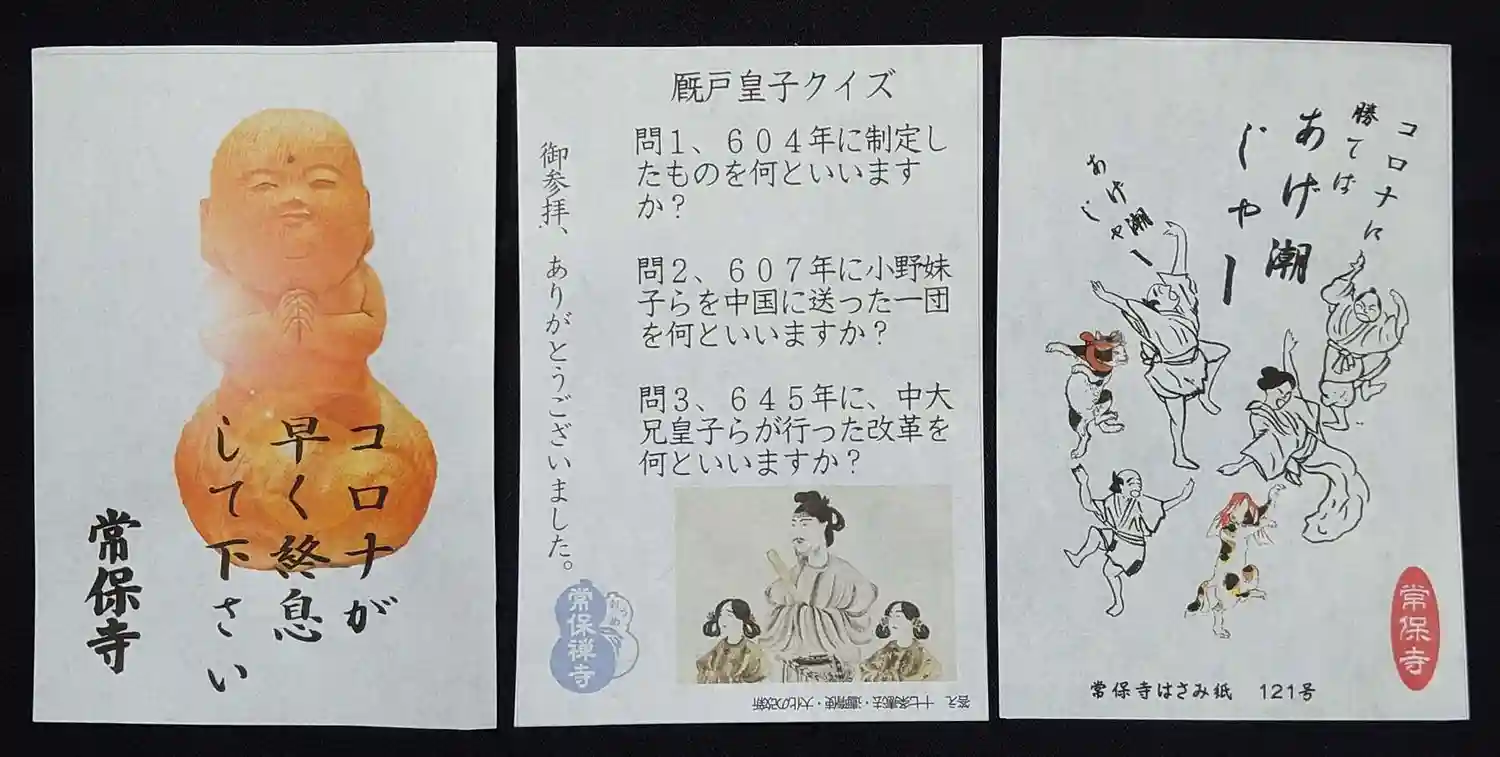 コロナが
早く終息
して下さい
常保寺
厩戸皇子クイズ
問1、604年に制定し
たものを何といいます
か?
問2、607年に小野妹
子らを中国に送った一団
を何といいますか?
問3、645年に、中大
兄皇子らが行った改革を
何といいますか?
御参拝、ありがとうございました。
常保禅寺
答え 十七条憲法・遣隋使・大化の改新
コロナに
勝てば
あげ潮
じゃー
あげ潮
じゃー
常保寺
常保寺はさみ紙 121号